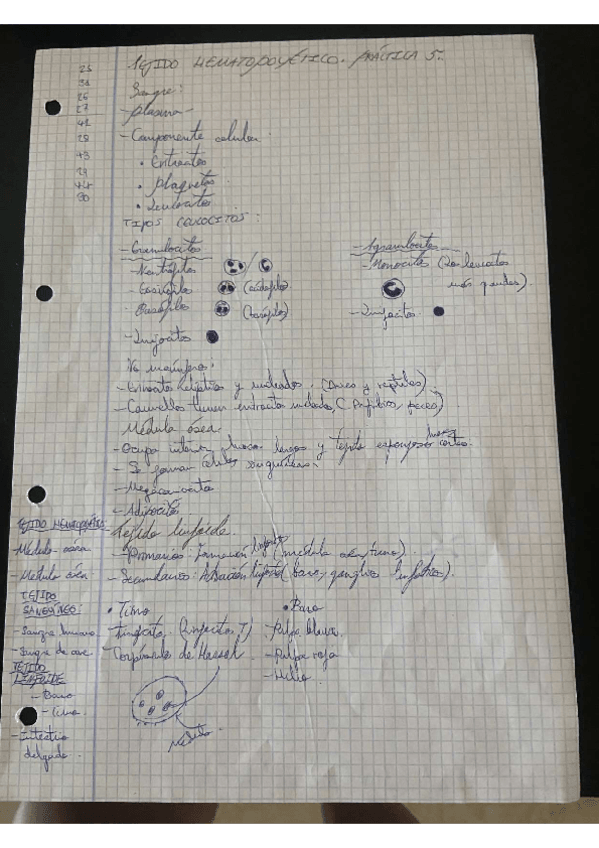 TEJIDO HEMATOPOYÉTICO. PRÁCTICA 5.
Sangre:
- plasma
- Componente celular:
• Eritrocitos
• Plaquetas
• Leucocitos
TIPOS LEUCOCITOS:
- Granulocitos
- Neutrófilos
- Eosinófilo (acidófilos)
- Basófilo (basófilos)
- Linfocitos
- Agranulocitos
- Monocitos (Son leucocitos
más grandes).
- Linfocitos
No mamíferos:
- Eritrocitos elípticos y nucleados. (Aves y reptiles)
- Camellos tienen eritrocito nucleado, (Anfibios, peces)
Médula ósea
- Ocupa interior huesos largos y tejido esponjoso huesos cortos.
- Se forman células sanguíneas.
- Megacariocito
- Adipocitos
- Tejido linfoide.
- Primarios: formación linfocitos (médula ósea, timo).
- Secundarios: Activación linfocitos (bazo, ganglios linfáticos).
• Timo
Timocitos, (linfocitos T)
Corpúsculo de Hassall
Médula
• Bazo
- Pulpa blanca.
- Pulpa roja
- Hilio
25
26
27
41
28
43
29
44
30
TEJIDO HEMATOPOYÉTICO
- Médula ósea
- Médula ósea
TEJIDO
SANGUÍNEO:
- Sangre humano
- Sangre de ave
TEJIDO
LINFOIDE
- Bazo
- Timo
- Intestino
delgado